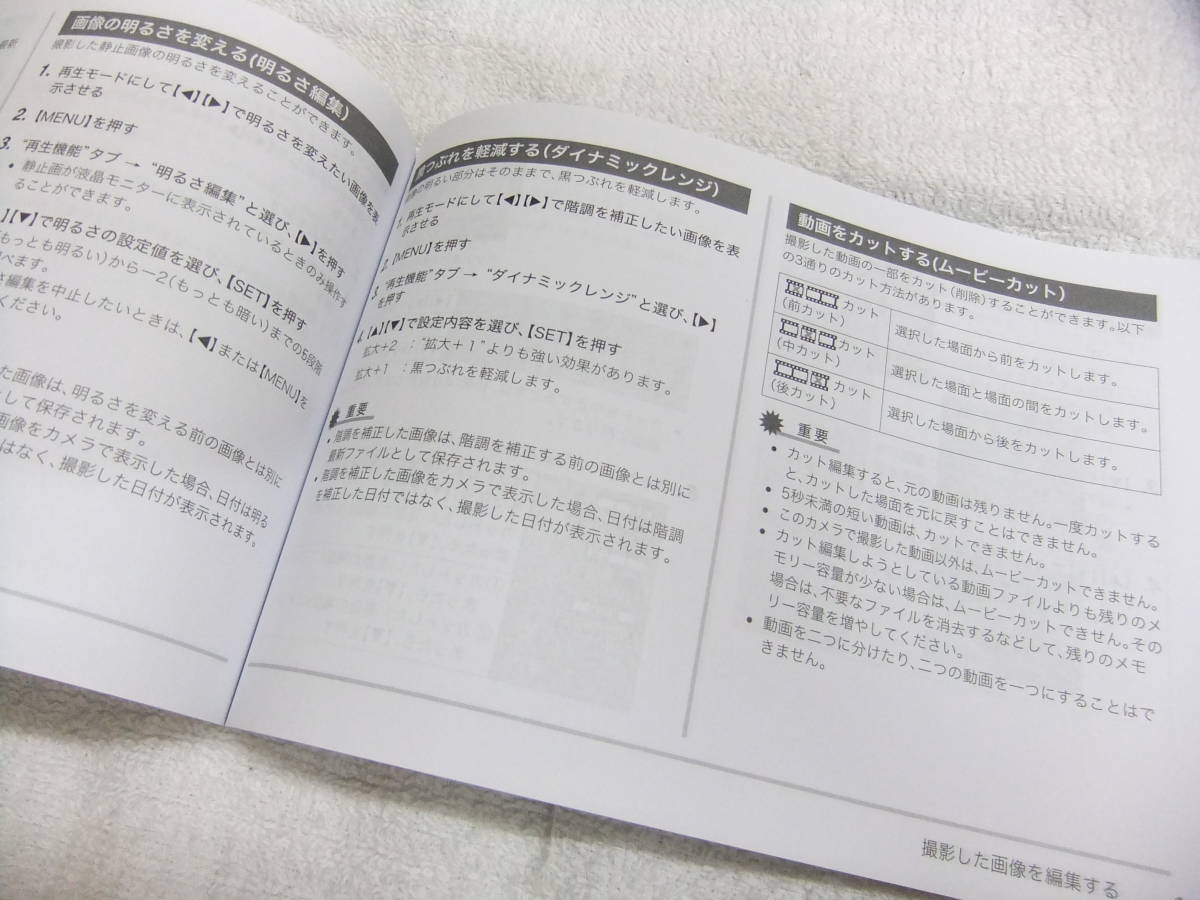 最新
画像の明るさを変える(明るさ編集)
撮影した静止画像の明るさを変えることができます。
1. 再生モードにして【◀】【▶】で明るさを変えたい画像を表
示させる
2. 【MENU】を押す
3. “再生機能”タブ → “明るさ編集”と選び、【▶】を押す
• 静止画が液晶モニターに表示されているときのみ操作す
ることができます。
】【▼】で明るさの設定値を選び、【SET】を押す
もっとも明るい)から−2(もっとも暗い)までの5段階
べます。
編集を中止したいときは、【◀】または【MENU】を
ください。
た画像は、明るさを変える前の画像とは別に
として保存されます。
画像をカメラで表示した場合、日付は明る
はなく、撮影した日付が表示されます。
黒つぶれを軽減する(ダイナミックレンジ)
の明るい部分はそのままで、黒つぶれを軽減します。
1. 再生モードにして【◀】【▶】で階調を補正したい画像を表
示させる
2. 【MENU】を押す
3. “再生機能”タブ → “ダイナミックレンジ”と選び、【▶】
を押す
4. 【▲】【▼】で設定内容を選び、【SET】を押す
拡大＋2 ：“拡大＋1”よりも強い効果があります。
拡大＋1 ：黒つぶれを軽減します。
重要
• 階調を補正した画像は、階調を補正する前の画像とは別に
最新ファイルとして保存されます。
• 階調を補正した画像をカメラで表示した場合、日付は階調
を補正した日付ではなく、撮影した日付が表示されます。
動画をカットする(ムービーカット)
撮影した動画の一部をカット(削除)することができます。以下
の3通りのカット方法があります。
カット
(前カット)
選択した場面から前をカットします。
カット
(中カット)
選択した場面と場面の間をカットします。
カット
(後カット)
選択した場面から後をカットします。
重要
• カット編集すると、元の動画は残りません。一度カットする
と、カットした場面を元に戻すことはできません。
• 5秒未満の短い動画は、カットできません。
• このカメラで撮影した動画以外は、ムービーカットできません。
• カット編集しようとしている動画ファイルよりも残りのメ
モリー容量が少ない場合は、ムービーカットできせん。その
場合は、不要なファイルを消去するなどして、残りのメモ
リー容量を増やしてください。
• 動画を二つに分けたり、二つの動画を一つにすることはで
きません。
撮影した画像を編集する